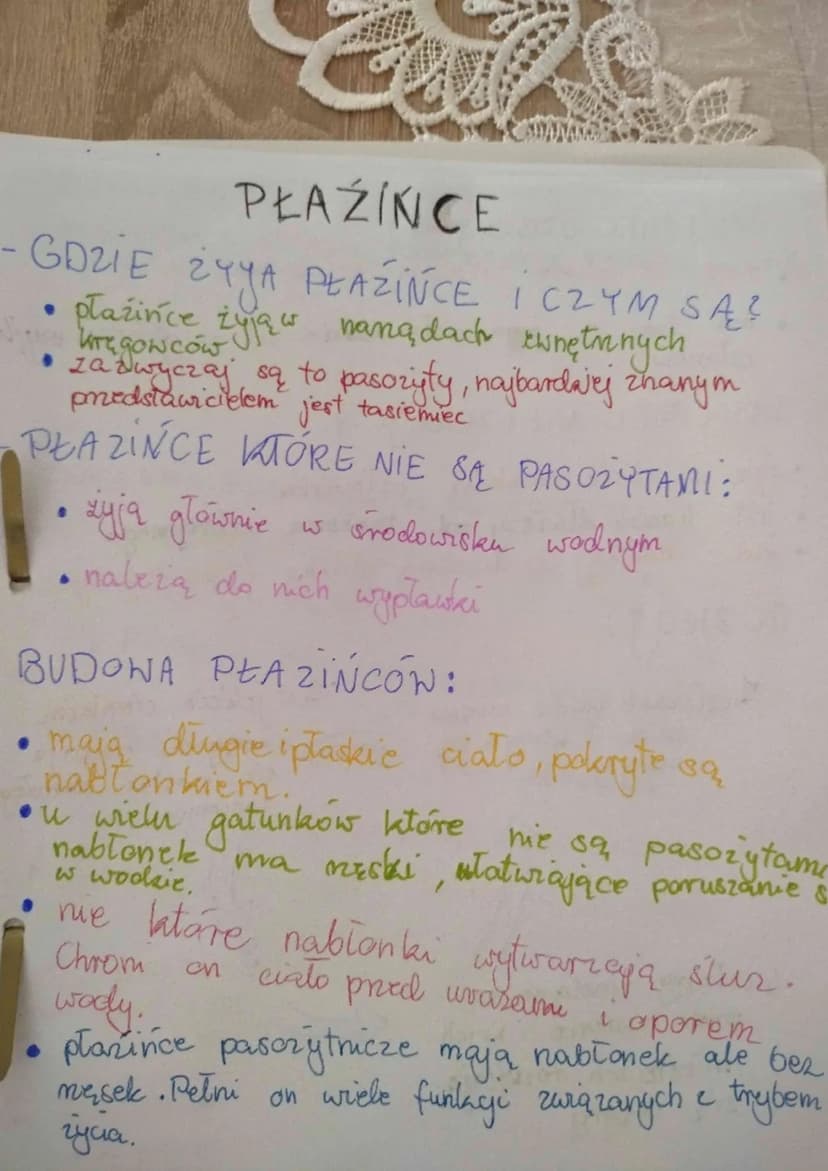 PŁAŹIŃCE
- GDZIE ŻYJĄ PŁAZIŃCE I CZYM SĄ?
• płazińce żyją w narządach wewnętrznych
kręgowców
• zazwyczaj są to pasożyty, najbardziej znanym
przedstawicielem jest tasiemiec
- PŁAZIŃCE KTÓRE NIE SĄ PASOŻYTAMI:
• żyją głównie w środowisku wodnym
• należą do nich wypławki
BUDOWA PŁAZIŃCÓW:
• mają długie i płaskie ciało, pokryte są
nabłonkiem.
• u wielu gatunków które nie są pasożytami
nabłonek ma rzęski, ułatwiające poruszanie s
w wodzie.
• nie które nabłonki wytwarzają śluz.
Chroni on ciało przed urazami i oporem
wody.
• płazińce pasożytnicze mają nabłonek ale bez
rzęsek. Pełni on wiele funkcji związanych z trybem
życia.